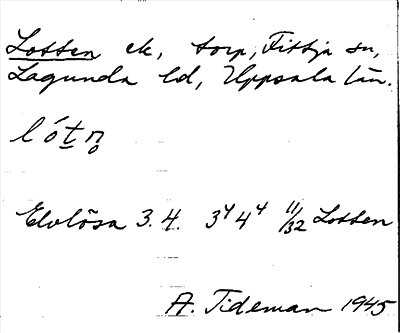 Lotten ek, torp, Fittja sn,
Lagunda hd, Uppsala län.
lót̲n̥
3.4. 3⁴ 4⁴ 11/32 Lotten
A. Tideman 1945